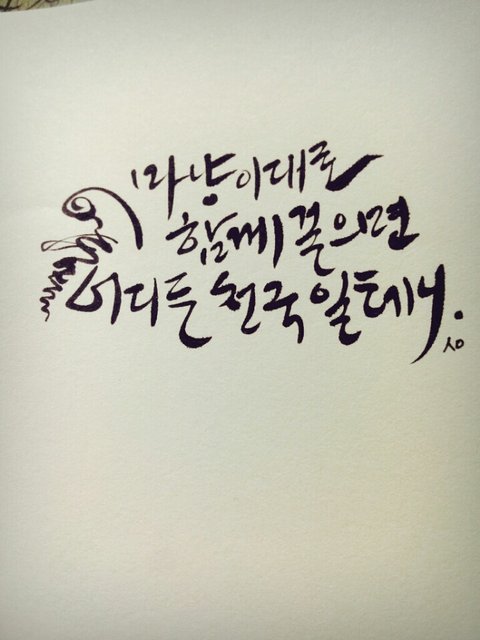 마냥 이대로
함께 걸으면
어디든 천국일테니.
ㅅㅇ